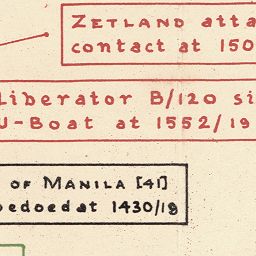 ZETLAND atta
contact at 150
Liberator B/120 si
U-Boat at 1552/19
OF MANILA [41]
pedoed at 1430/19